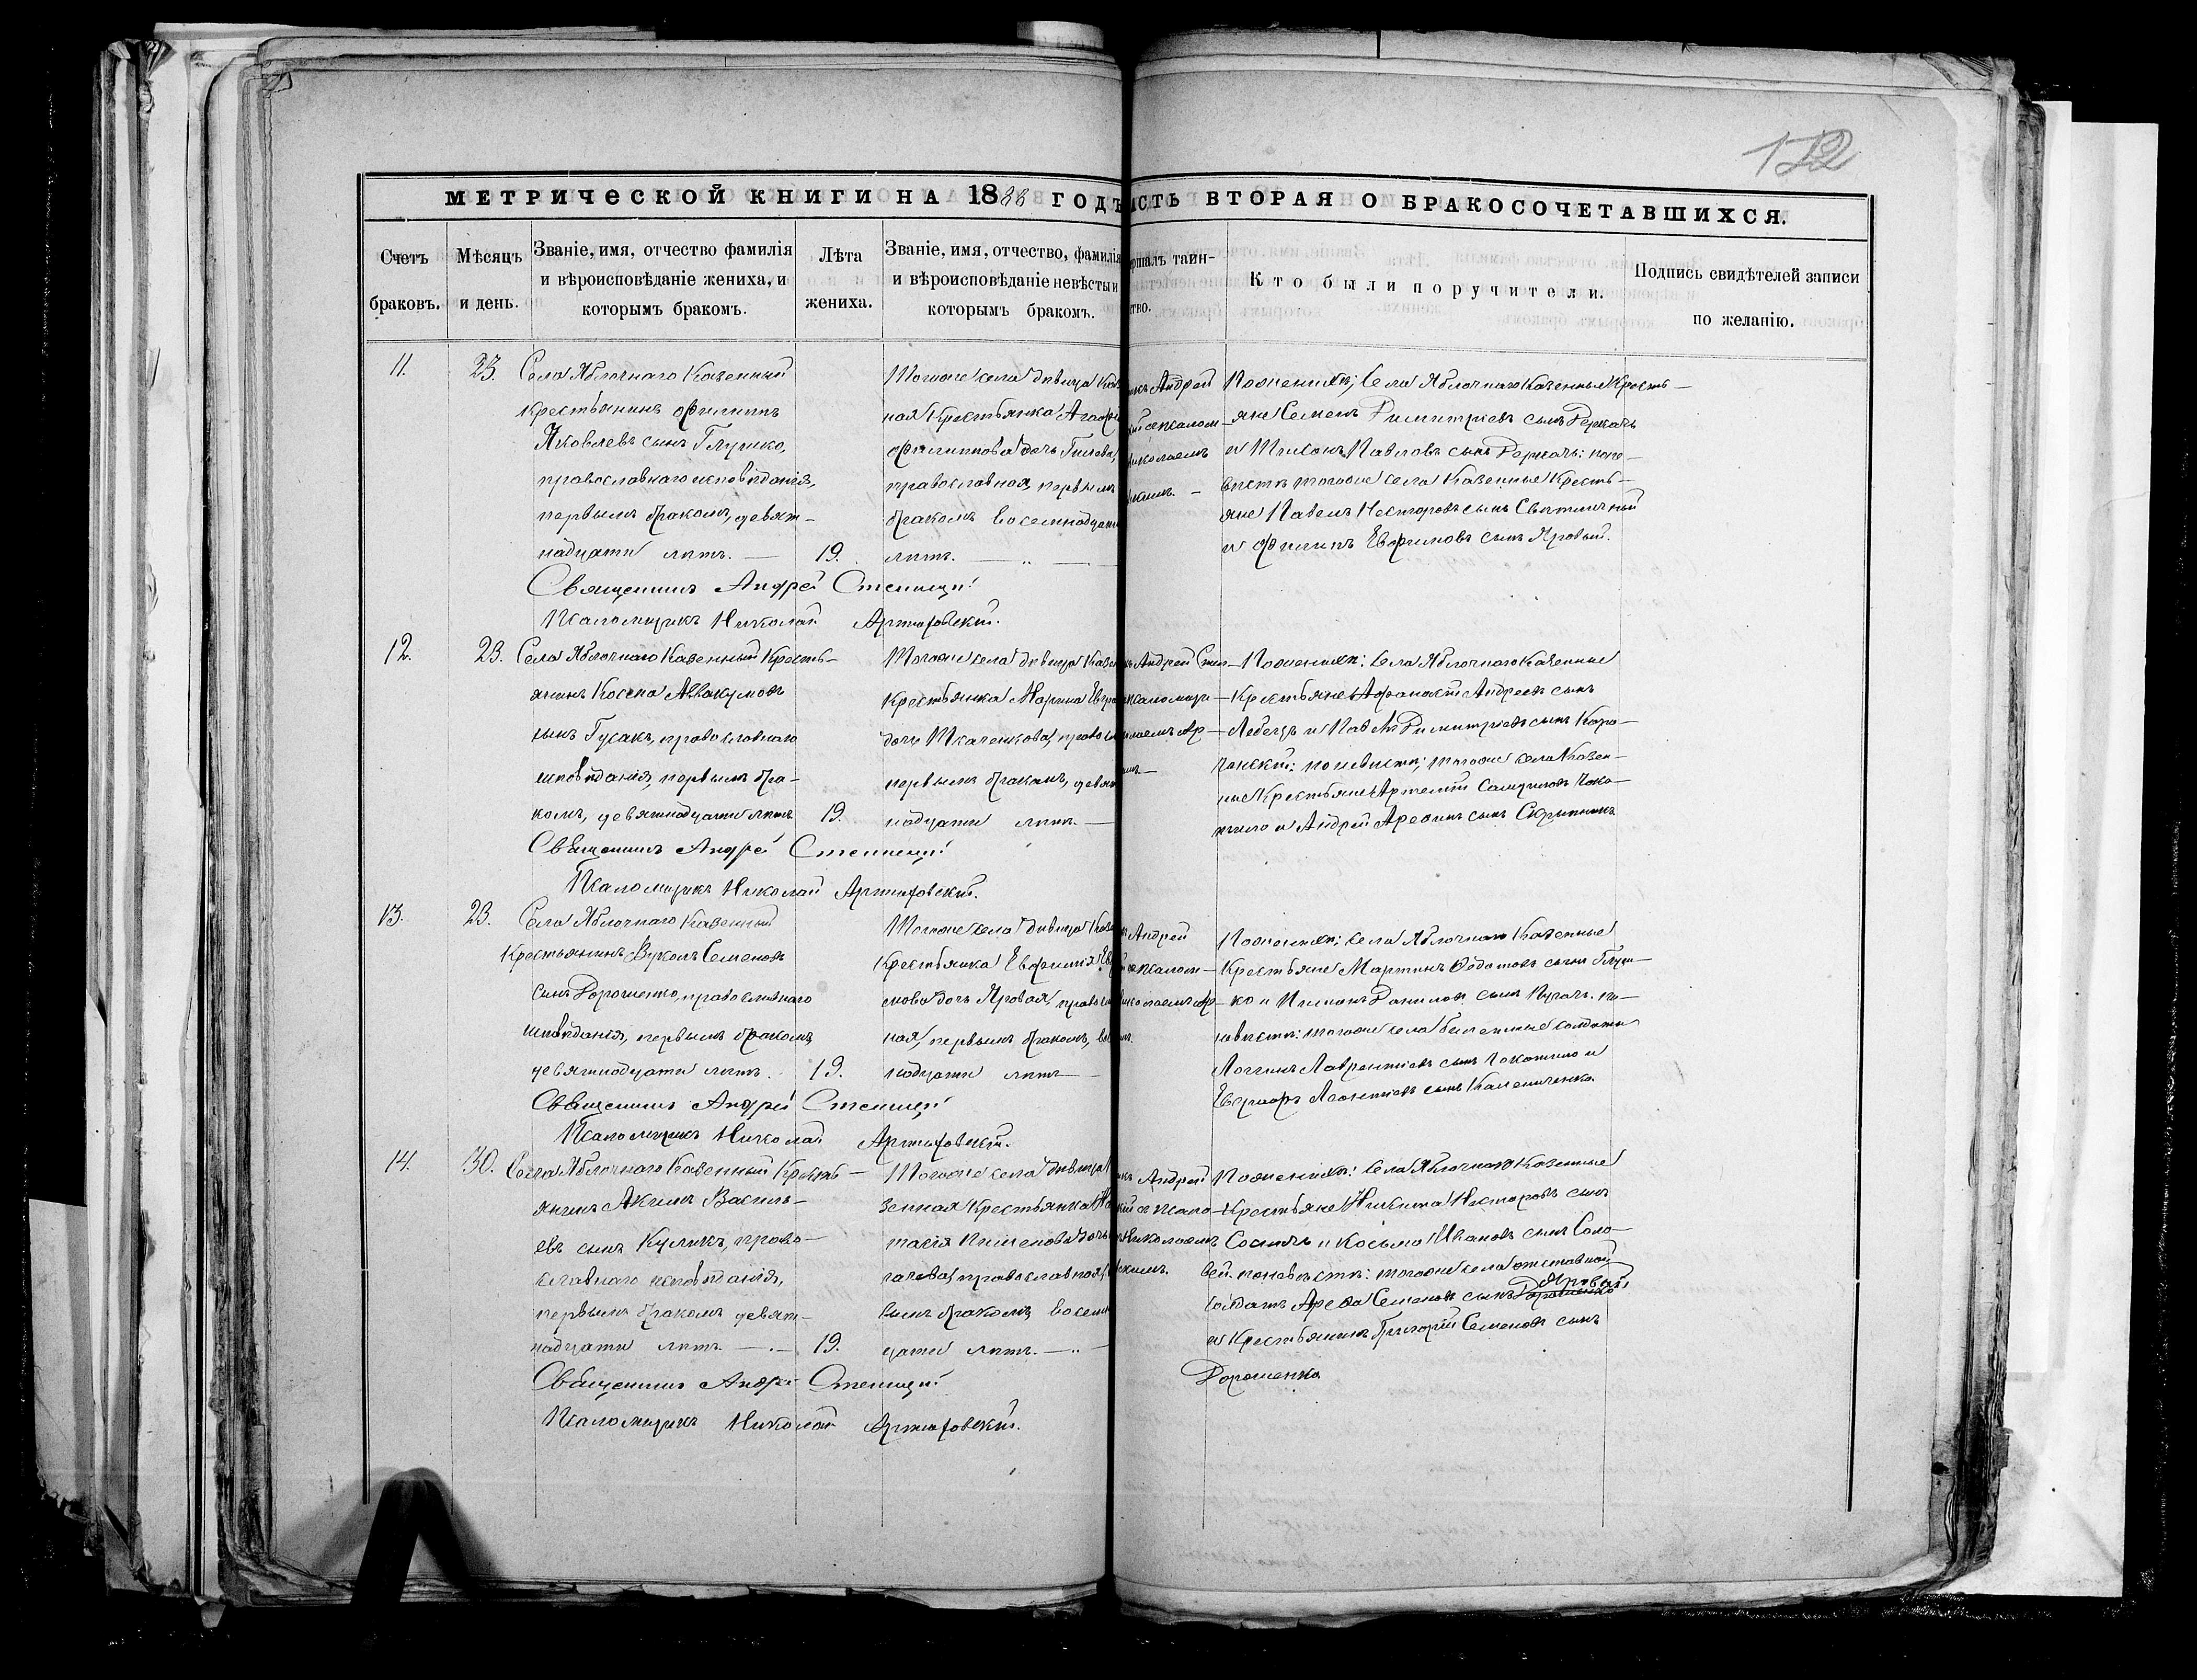 172
МЕТРИЧЕСКОЙ КНИГИ НА 1888 ГОДЪ
АСТЬ ВТОРАЯ О БРАКОСОЧЕТАВШИХСЯ.
Счетъ браковъ.
Мѣсяцъ и день.
Званіе, имя, отчество фамилія
и вѣроисповѣданіе жениха, и
которымъ бракомъ.
Лѣта
жениха.
Званіе, имя, отчество, фамилія
и вѣроисповѣданіе невѣсты и
которымъ бракомъ.
ршалъ таин-
ство.
Кто были поручители.
Подпись свидѣтелей записи
по желанію.
11.
23.
Села Яблочнаго Казенный
крестьянинъ Филиппъ
Яковлевъ сынъ Глушко,
православнаго исповѣданія,
первымъ бракомъ, девят-
надцати лѣтъ.
19.
Тогоже села дѣвица Каз
ная крестьянка Агафі
Филиппова дочь
православная, первымъ
бракомъ восемнадцати
лѣтъ.
Андрей
псалом-
николаемъ
По женихѣ; Села Яблочнаго Казенные Кресть-
яне Семенъ Димитріевъ сынъ Деркачь
и Тихонъ Павловъ сынъ Деркачь: по не-
вѣстѣ тогоже села Казенные Кресть-
яне Павелъ Несторовъ сынъ Святличный
и Филипъ Евфимовъ сынъ Яровый.
Священникъ Андрей
Псаломщикъ Николай
12.
23.
Села Яблочнаго Казенный Кресть-
янинъ Косьма Аввакумовъ
сынъ Гусакъ, православнаго
исповѣданія, первымъ бра-
комъ, девятнадцати лѣтъ
19.
Тогоже села дѣвица Казен
Крестьянка Марина
дочь Ткаченкова, правосл
первымъ бракомъ, девят
надцати лѣтъ.
Андрей
псаломщи-
лаемъ Ар-
По женихѣ: Села Яблочнаго Казенные
Крестьяне Афанасій Андреевъ сынъ
Лебедь и Павелъ Димитріевъ сынъ
по невѣстѣ; тогоже села Казен-
ные Крестьяне Артемій
и Андрей Арефинъ сынъ Скрыпникъ
Священникъ Андрей
Псаломщикъ Николай
13.
23.
Села Яблочнаго Казенный
Крестьянинъ Вуколъ Семеновъ
сынъ Дорошенко, православнаго
исповѣданія, первымъ бракомъ
девятнадцати лѣтъ.
19.
Тогоже села дѣвица Казе
Крестьянка Евфимія Ев
мова дочь Яровая, правосла
ная, первымъ бракомъ, во
надцати лѣтъ
Андрей
псалом-
николаемъ Ар-
По женихѣ; Села Яблочнаго Казенные
Крестьяне Мартинъ Федотовъ сынъ Глуш-
ко и Пименъ Даниловъ сынъ по
невѣстѣ: тогоже села билетные солдаты
Логгинъ Лаврентіевъ сынъ и
Евграфъ Леонтіевъ сынъ
Священникъ Андрей
Псаломщикъ Николай
14.
30.
Села Яблочнаго Казенный Кресть-
янинъ Акимъ Василь-
евъ сынъ Куликъ, право-
славнаго исповѣданія,
первымъ бракомъ девят-
надцати лѣтъ.
19.
Тогоже села дѣвица
зенная Крестьянка
тасія Пименова дочь
гачова, православная,
вымъ бракомъ, восемн
цати лѣтъ.
Андрей
псало-
Николаемъ
скимъ.
По женихѣ: Села Яблочнаго Казенные
Крестьяне Никита Несторовъ сынъ
и Косьма Ивановъ сынъ Соло-
вей. по невѣстѣ: тогоже села отставной
Яровый
солдатъ Арефа Семеновъ сынъ Дорошенко
и Крестьянинъ Григорій Семеновъ сынъ
Дорошенко
Священникъ Андрей
Псаломщикъ Николай